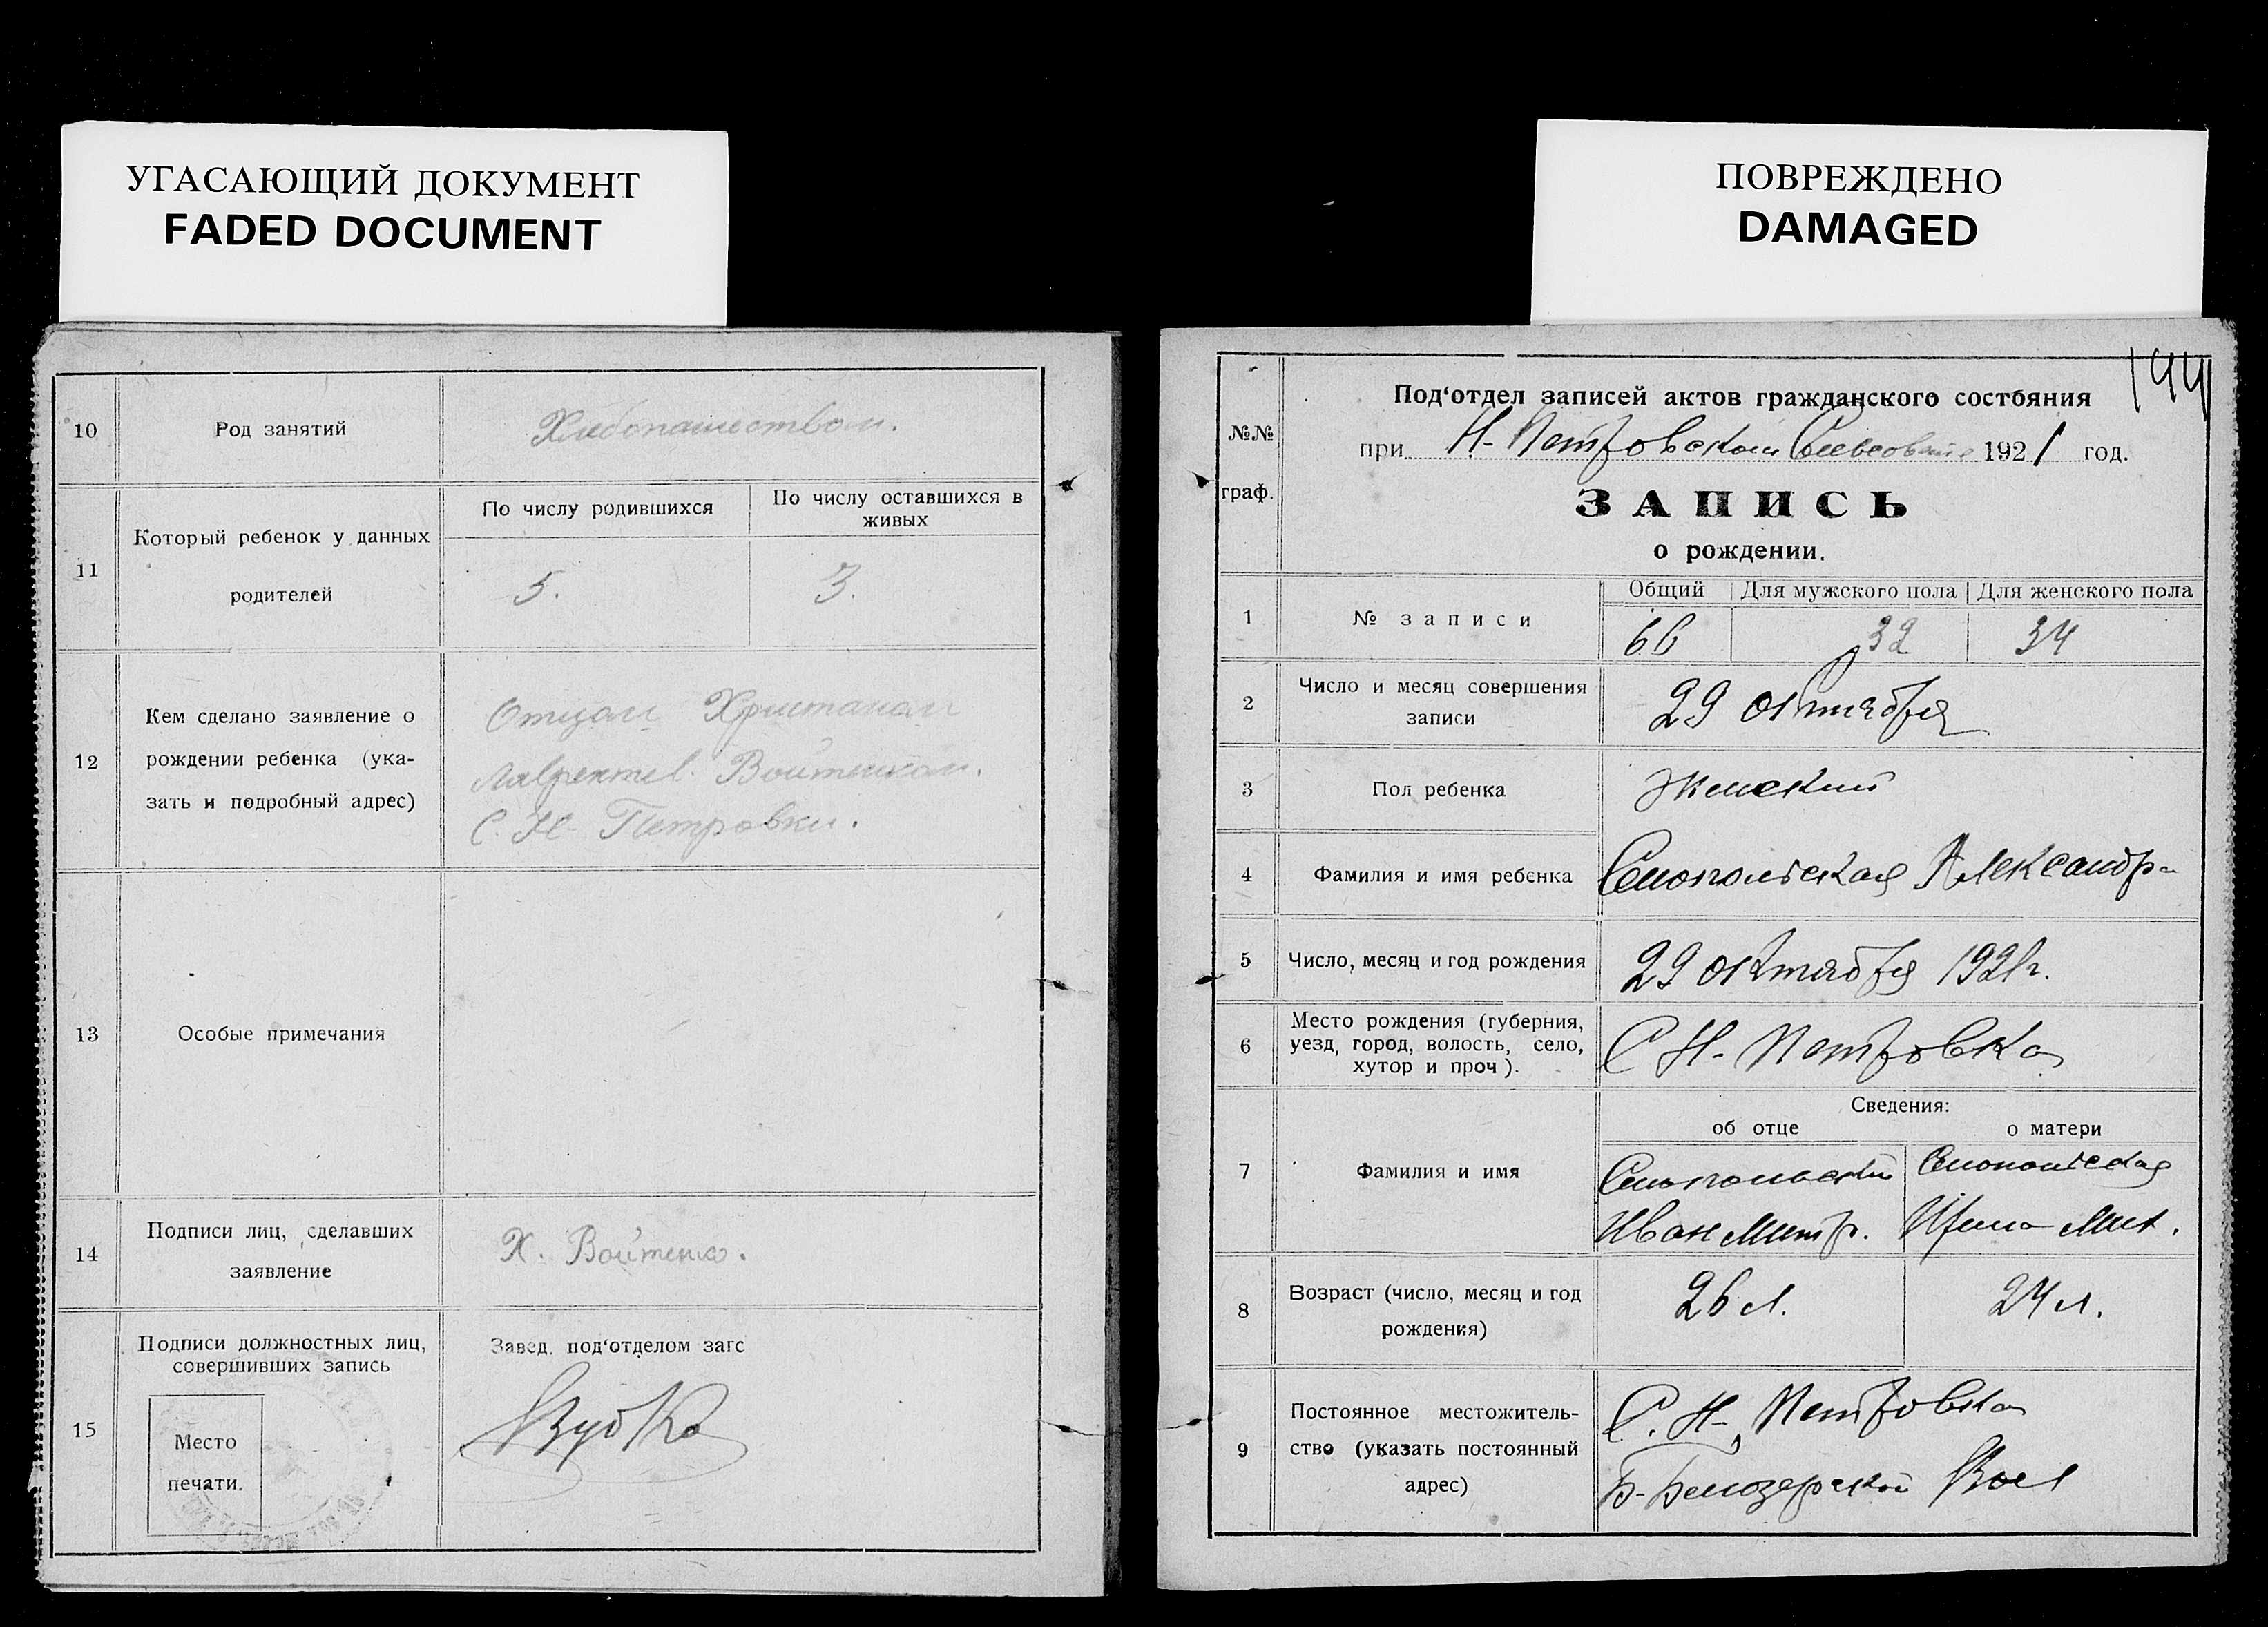 УГАСАЮЩИЙ ДОКУМЕНТ
FADED DOCUMENT
10 Род занятий Хлебопашеством.
11 Который ребенок у данных родителей
По числу родившихся По числу оставшихся в живых
5. 3.
12 Кем сделано заявление о рождении ребенка (указать и подробный адрес)
Отцом Христаном
Лаврентев. Войтенком.
С. Н- Петровки.
13 Особые примечания
14 Подписи лиц, сделавших заявление
Х. Войтенко.
15 Подписи должностных лиц, совершивших запись
Завед. под‘отделом загс
Место
печати.
ПОВРЕЖДЕНО
DAMAGED
№№
граф.
Под‘отдел записей актов гражданского состояния
при Н- Петровском Сельсовете 1921 год.
ЗАПИСЬ
о рождении.
1 № записи
Общий Для мужского пола Для женского пола
66 32 34
2 Число и месяц совершения записи
29 октября
3 Пол ребенка
Женский
4 Фамилия и имя ребенка
Александра
5 Число, месяц и год рождения
29 октября 1921г.
6 Место рождения (губерния, уезд, город, волость, село, хутор и проч).
С Н- Петровка
Сведения:
об отце о матери
7 Фамилия и имя
Иван Митр. Ирина Мих.
8 Возраст (число, месяц и год рождения)
26 л. 24 л.
9 Постоянное местожительство (указать постоянный адрес)
С. Н- Петровка
Б-Белозерской Вол